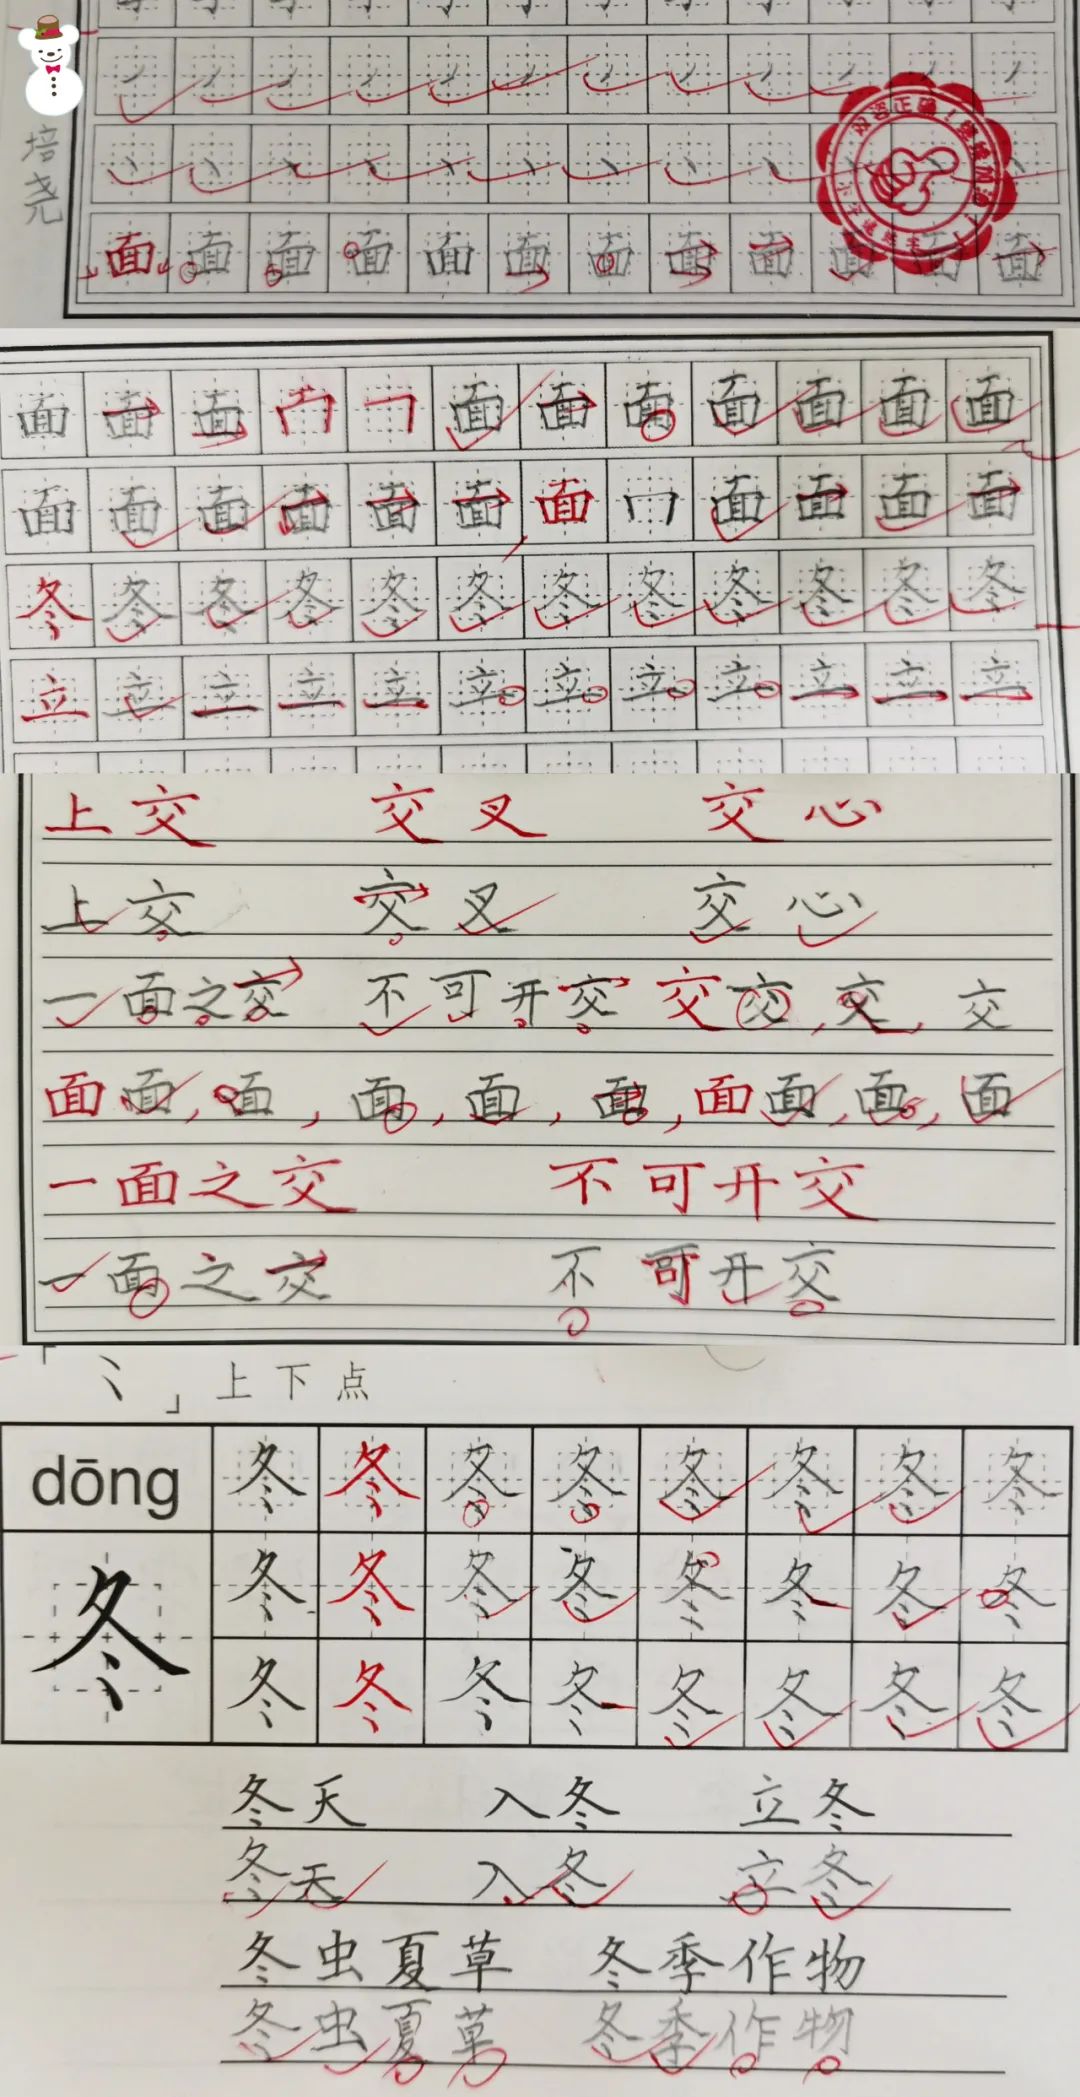 培尧
面 面 面 面 面 面 面 面 面 面 面 面
面 面 面 面 面 面 面 面 面 面
面 面 面 面 面 面 面 面 面 面 面
冬 冬 冬 冬 冬 冬 冬 冬 冬 冬 冬 冬
立 立 立 立 立 立 立 立 立 立 立 立
上交 交叉 交心
上交 交叉 交心
一面之交 不可开交 交 交, 交, 交
面 面, 面, 面, 面, 面, 面 面, 面, 面
一面之交 不可开交
一面之交 不可开交
「⺀」上下点
dōng 冬 冬 冬 冬 冬 冬 冬 冬
冬 冬 冬 冬 冬 冬 冬 冬 冬
冬 冬 冬 冬 冬 冬 冬 冬
冬天 入冬 立冬
冬天 入冬 立冬
冬虫夏草 冬季作物
冬虫夏草 冬季作物